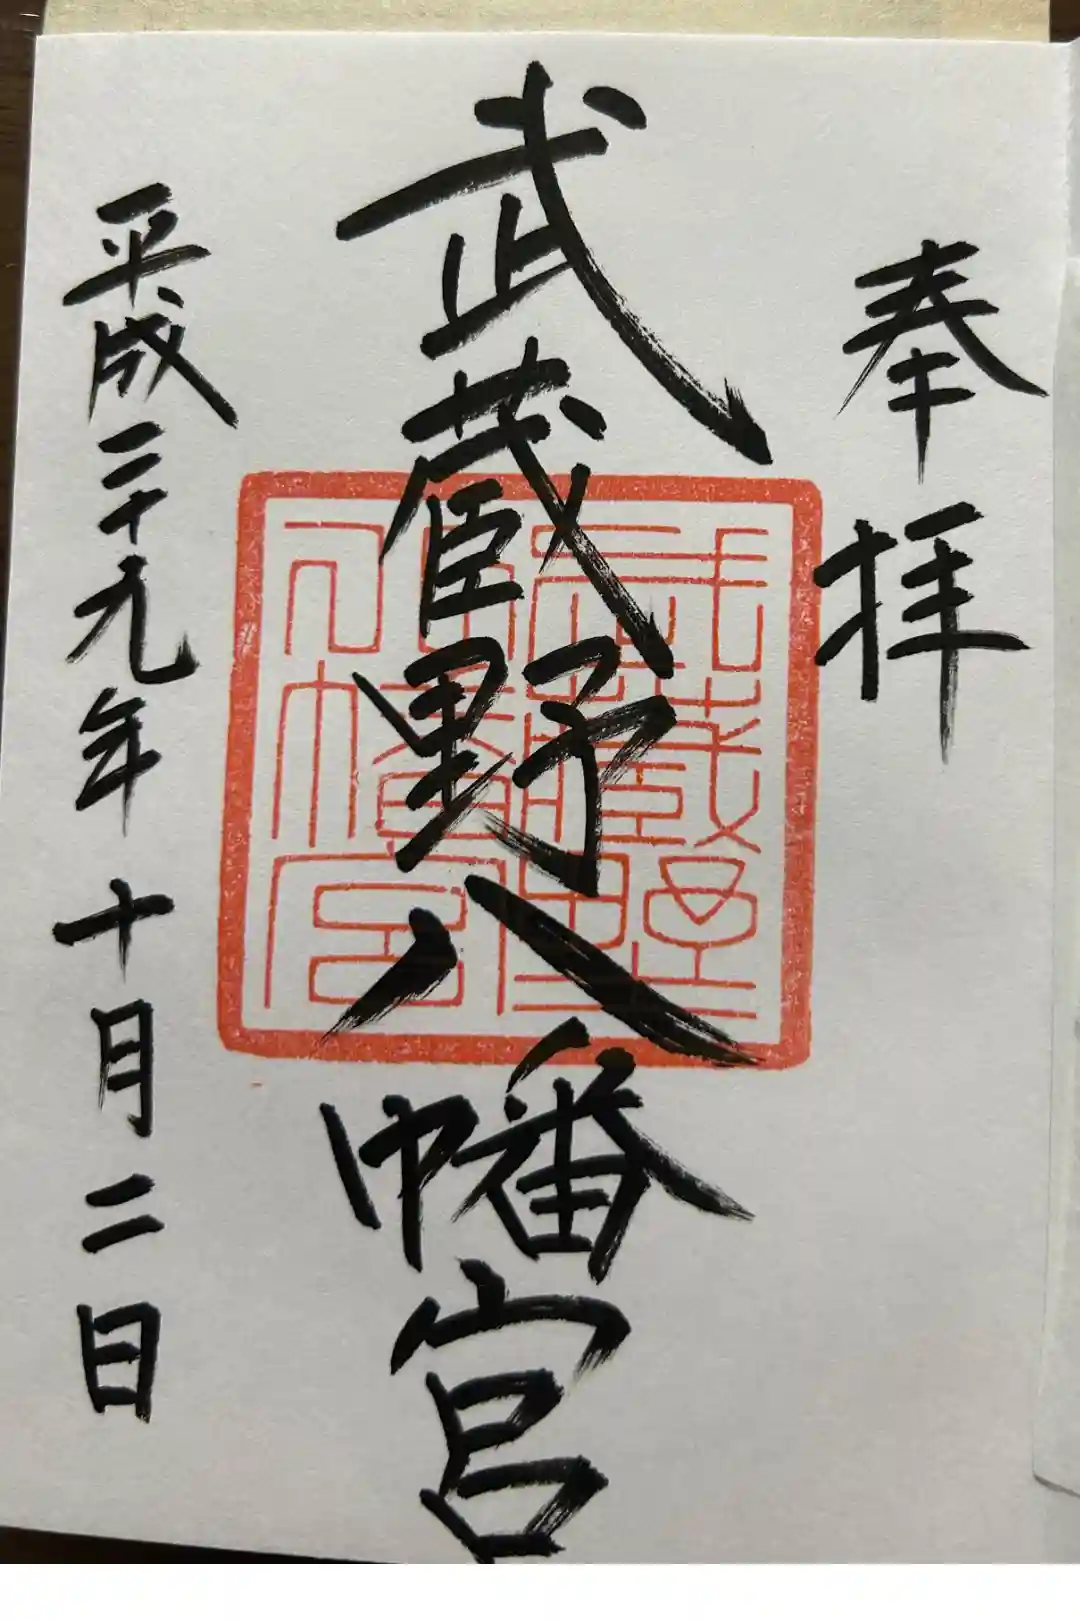 奉拝
武蔵野八幡宮
武蔵野坐八幡宮
平成二十九年十月二日